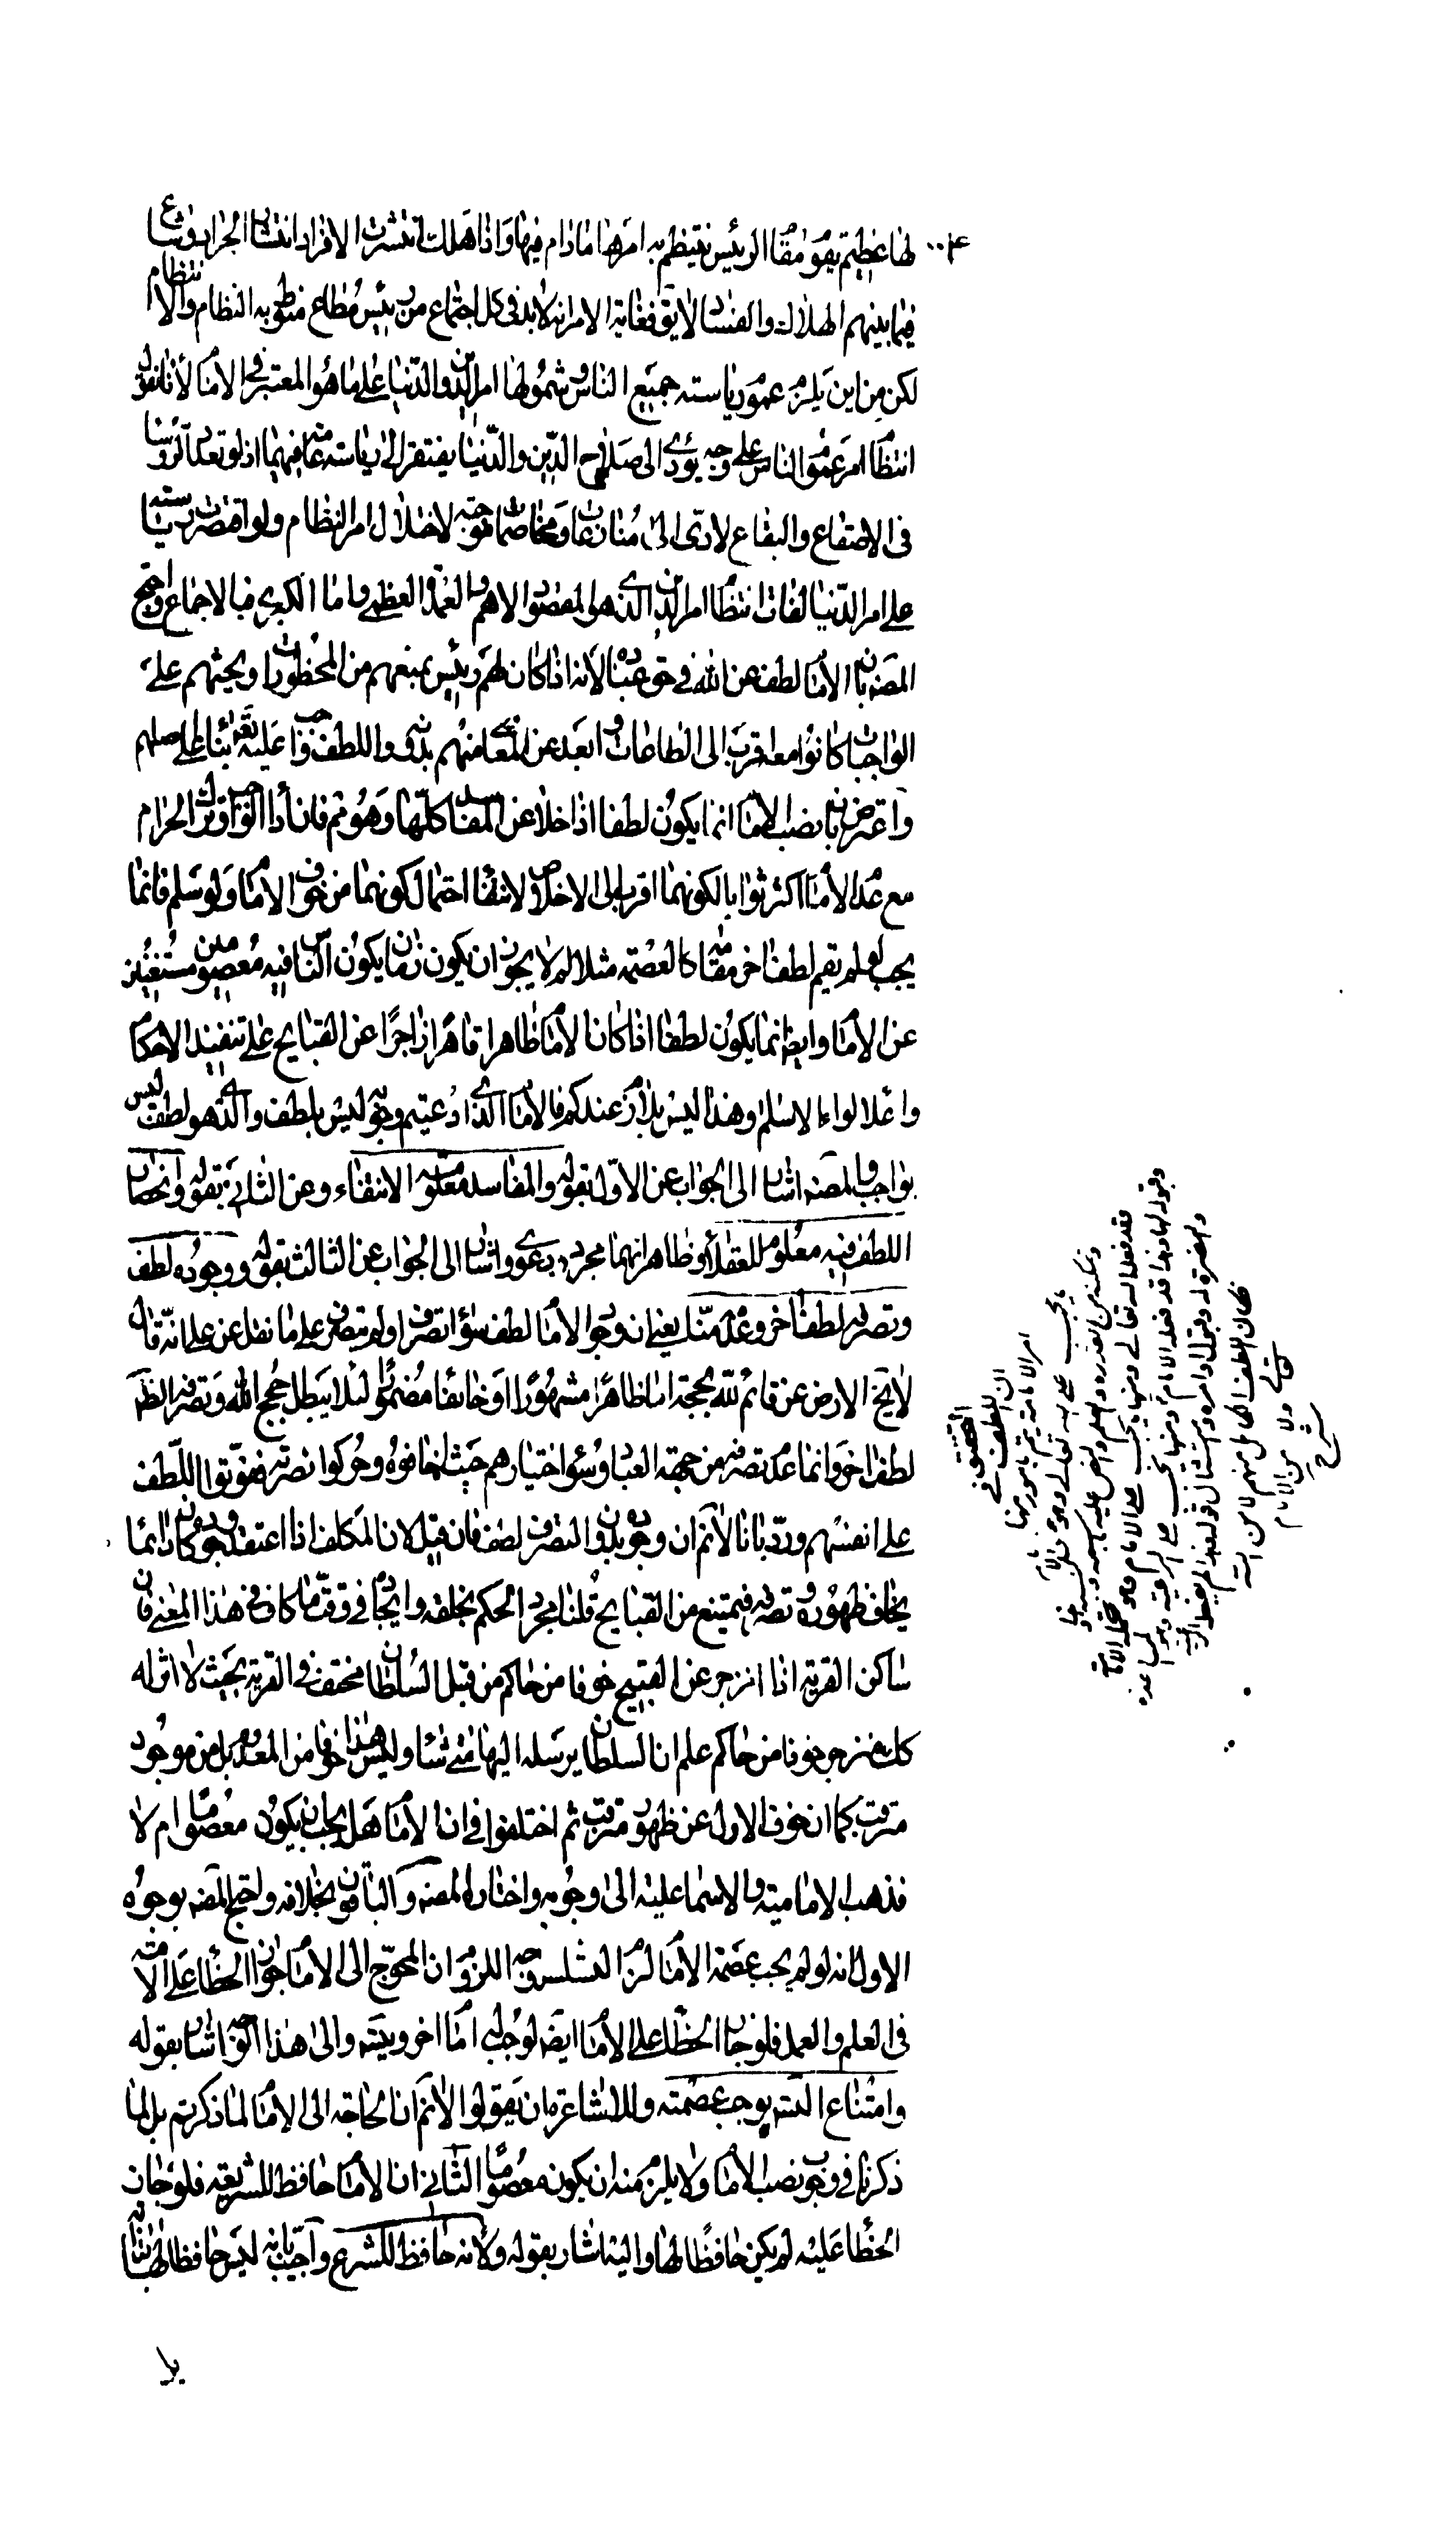 لها عظيم يقوم مقام الرئيس ينتظم به امرها ما دام فيها واذا هلك انتشرت الافراد انتشار الجراد وشاع
فيما بينهم الهلاك والفساد لا يق فغاية الامر انه لا بد في كل اجتماع من رئيس مطاع منوط به النظام والانتظام
لكن من اين يلزم عموم رياسته جميع الناس وشمولها امر الدين والدنيا على ما هو المعتبر في الامام لانا نقول
انتظام امر عموم الناس على وجه يؤدى الى صلاح الدين والدنيا يفتقر الى رياسة عامة فيهما اذ لو تعدد الرؤسا
في الاصقاع والبقاع لادى الى منازعات ومخاصمات موجبة لاختلال امر النظام ولو اقتصرت رياسته
على امر الدنيا لفات انتظام امر الدين الذى هو المقصود الاهم والعمدة العظمى واما الكبرى فبالاجماع واحتج
المصنف بان الامام لطف من الله في حق عباده لانه اذا كان لهم رئيس يمنعهم من المحظورات ويحثهم على
الواجبات كانوا معه اقرب الى الطاعات وابعد عن المعاصى منهم بدونه واللطف واجب عليه تعالى بناء على اصلهم
واعترض بان نصب الامام انما يكون لطفا اذا خلا عن المفاسد كلها وهو مم فان اداء الواجب وترك الحرام
مع عدم الامام اكثر ثوابا لكونهما اقرب الى الاخلاص لانتفاء احتمال كونهما من خوف الامام ولو سلم فانما
يجب لو لم يقم لطف اخر مقامه كالعصمة مثلا لم لا يجوز ان يكون زمان يكون الناس فيه معصومين مستغنين
عن الامام وايضا انما يكون لطفا اذا كان الامام ظاهرا قاهرا زاجرا عن القبايح على تنفيذ الاحكام
واعلا لواء الاسلام وهذا ليس بلازم عندكم فالامام الذى ادعيتم وجوبه ليس بلطف والذى هو لطف ليس
بواجب والمصنف اشار الى الجواب عن الاول بقوله والمفاسد معلومة الانتفاء وعن الثانى بقوله وانحصار
اللطف فيه معلوم للعقلاء وظاهر انهما مجرد دعوى واشار الى الجواب عن الثالث بقوله ووجوده لطف
وتصرفه لطف اخر وعدمه منا يعنى ان وجود الامام لطف سواء تصرف او لم يتصرف على ما نقل عن على انه قال
لا يخ الارض عن قائم لله بحجة اما ظاهرا مشهورا او خائفا مضمورا لئلا يبطل حجج الله وتصرفه الظاهر
لطف اخر وانما عدم تصرفه من جهة العباد وسوء اختيارهم حيث اخافوه وتركوا نصرته ففوتوا اللطف
على انفسهم ورد بانا لا نم ان وجوده بدون التصرف لطف فان قيل لان المكلف اذا اعتقد وجوده كان دائما
يخاف ظهوره وتصرفه فيمتنع من القبايح قلنا مجرد الحكم بخلقه وايجاده في وقت ما كاف في هذا المعنى فان
ساكن القرية اذا انزجر عن القبيح خوفا من حاكم من قبل السلطان مختف في القرية بحيث لا اثر له
كك ينزجر خوفا من حاكم علم ان السلطان يرسله اليها متى شاء وليس هذا خوفا من المعدوم بل من موجود
مترقب كما ان خوف الاول عن ظهور مترقب ثم اختلفوا في ان الامام هل يجب ان يكون معصوما ام لا
فذهب الامامية والاسماعلية الى وجوبه واختاره المصنف والباقون بخلافه واحتج المصنف بوجوه
الاول انه لو لم يجب عصمة الامام لزم التسلسل وجه اللزوم ان المحوج الى الامام جواز الخطاء على الامة
في العلم والعمل فلو جاز الخطاء على الامام ايضا لوجب له امام اخر ويتسلسل والى هذا الوجه اشار بقوله
وامتناع التس يوجب عصمته وللاشاعرة ان يقولوا لا نم ان الحاجة الى الامام لما ذكرتم بل لما
ذكرنا في وجوب نصب الامام ولا يلزم منه ان يكون معصوما الثانى ان الامام حافظ للشريعة فلو جاز
الخطا عليه لم يكن حافظا لها واليه اشار بقوله ولانه حافظ للشرع واجيب بانه ليس حافظا لها بذاته
التحقيق في
ان اللطف في
امر الامامة يتم بامور منها
ما يجب على الله تعالى وهو خلق الامام
وتمكينه من القدرة والعلم والنص عليه باسمه ونسبه وهذا
فقد فعله الله تعالى ومنها ما يجب على الامام وهو تحمله الامامة
وقبوله لها وهذا قد فعله الامام ومنها ما يجب على الرعية وهو المساعدة
والنصرة له وقبول اوامره وامتثال قوله وهذا لم يفعله الرعية
فكان اللطف الكامل منهم لا من الله
تعالى ولا من الامام
شرح